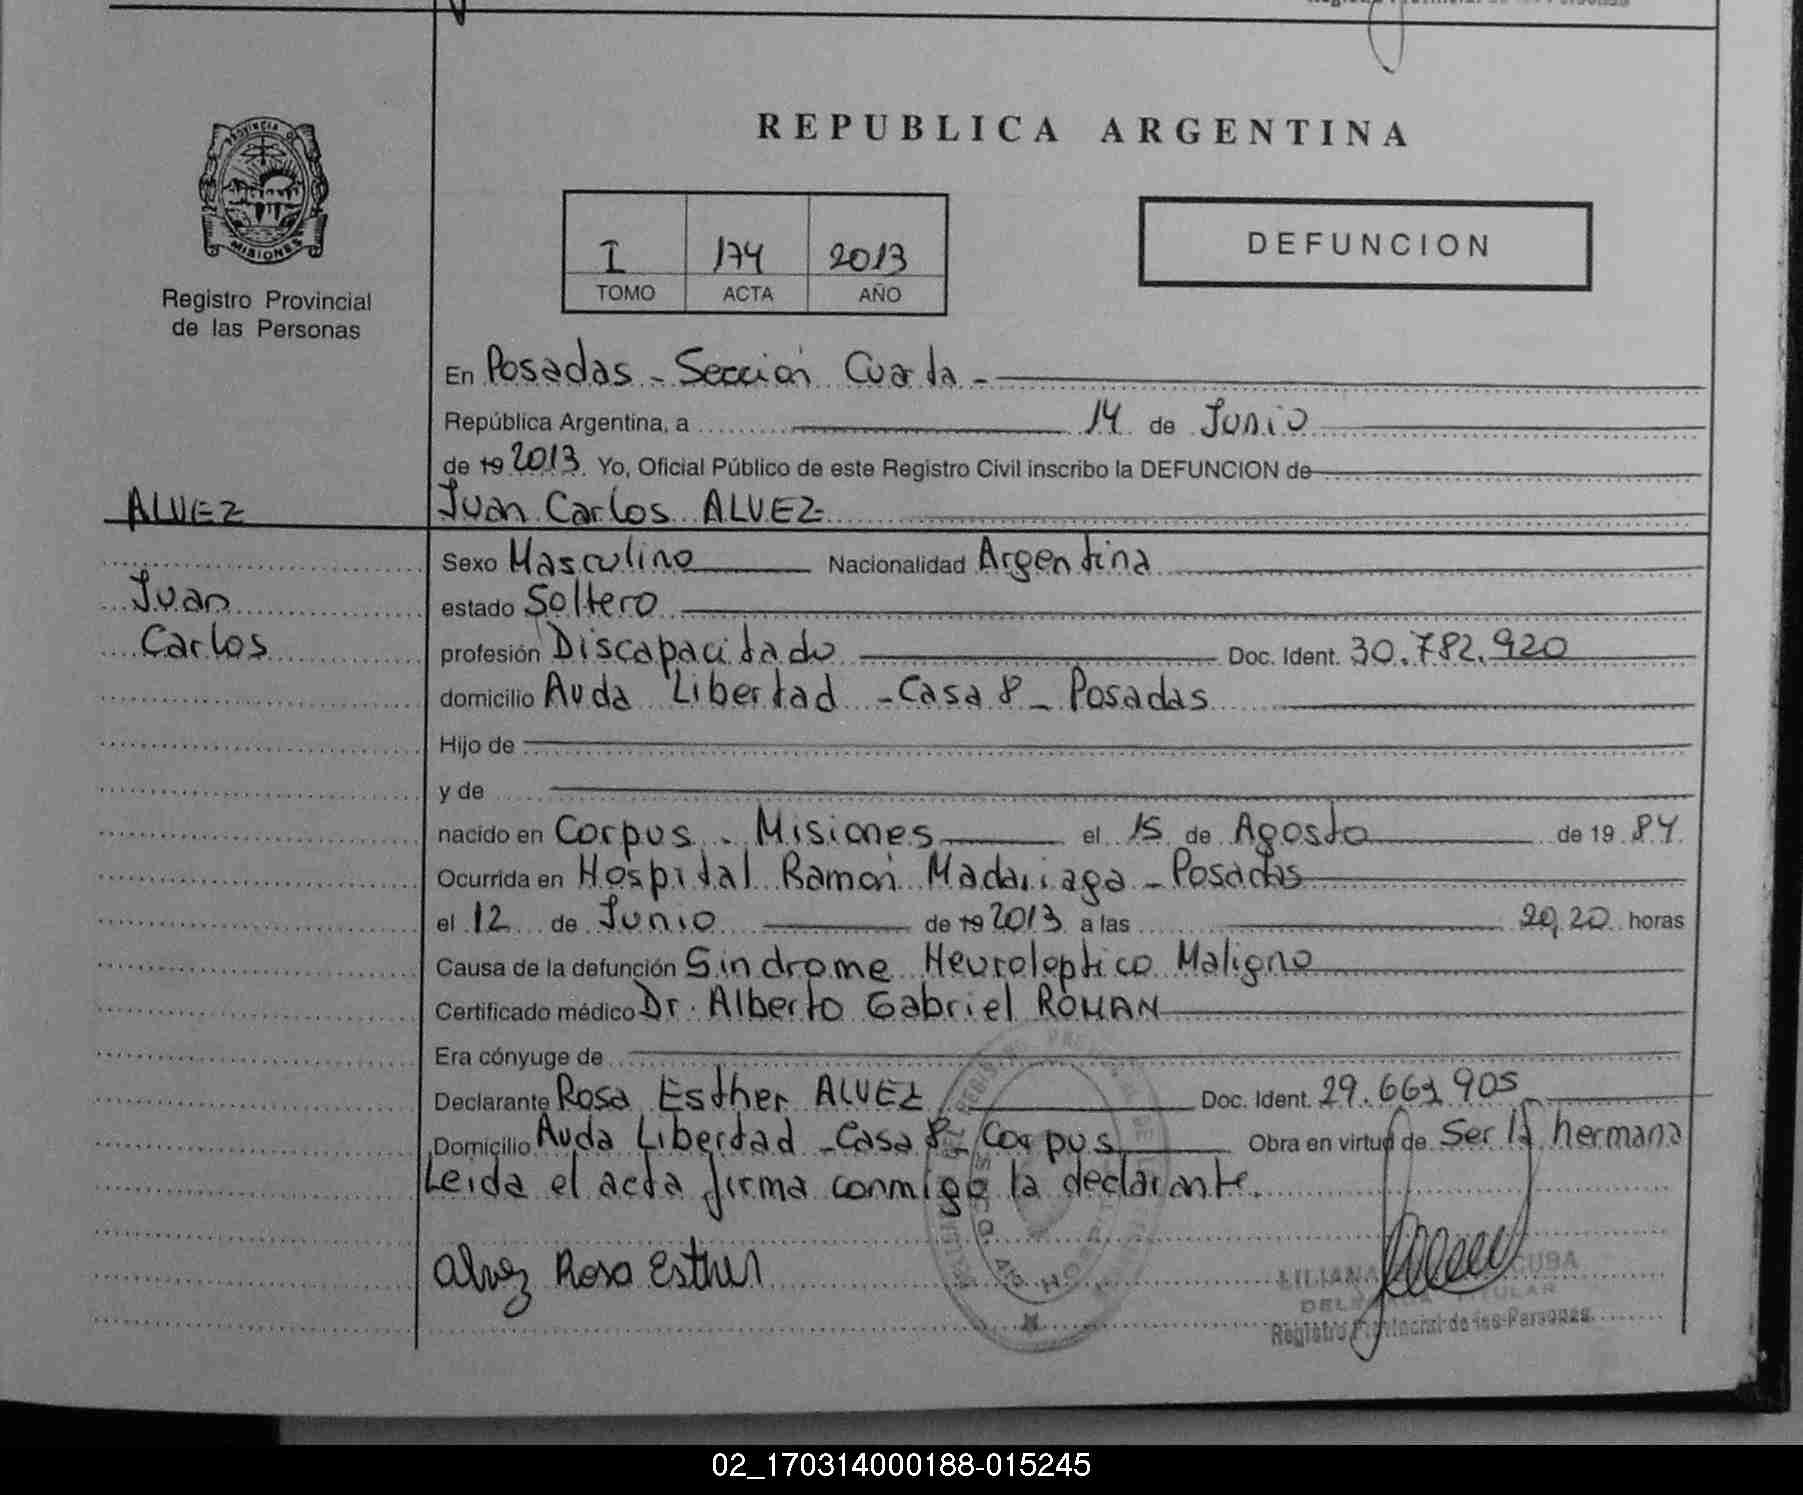 PROVINCIA DE
MISIONES
Registro Provincial
de las Personas
REPUBLICA ARGENTINA
I 174 2013
TOMO ACTA AÑO
DEFUNCION
En Posadas - Sección Cuarta -
República Argentina, a 14 de Junio
de 19 2013. Yo, Oficial Público de este Registro Civil inscribo la DEFUNCION de
ALVEZ Juan Carlos ALVEZ
Sexo Masculino Nacionalidad Argentina
Juan estado Soltero
Carlos profesión Discapacitado Doc. Ident. 30.782.920
domicilio Avda Libertad - Casa 8 - Posadas
Hijo de
y de
nacido en Corpus - Misiones el 15 de Agosto de 19 84
Ocurrida en Hospital Ramón Madariaga - Posadas
el 12 de Junio de 19 2013 a las 20,20 horas
Causa de la defunción Sindrome Neuroleptico Maligno
Certificado médico Dr. Alberto Gabriel ROMAN
Era cónyuge de
Declarante Rosa Esther ALVEZ Doc. Ident. 29.661.905
Domicilio Avda Libertad - Casa 8 - Corpus Obra en virtud de Ser la hermana
Leida el acta firma conmigo la declarante.
Alvez Rosa Esther
LILIANA
Registro Provincial de las Personas
02_170314000188-015245